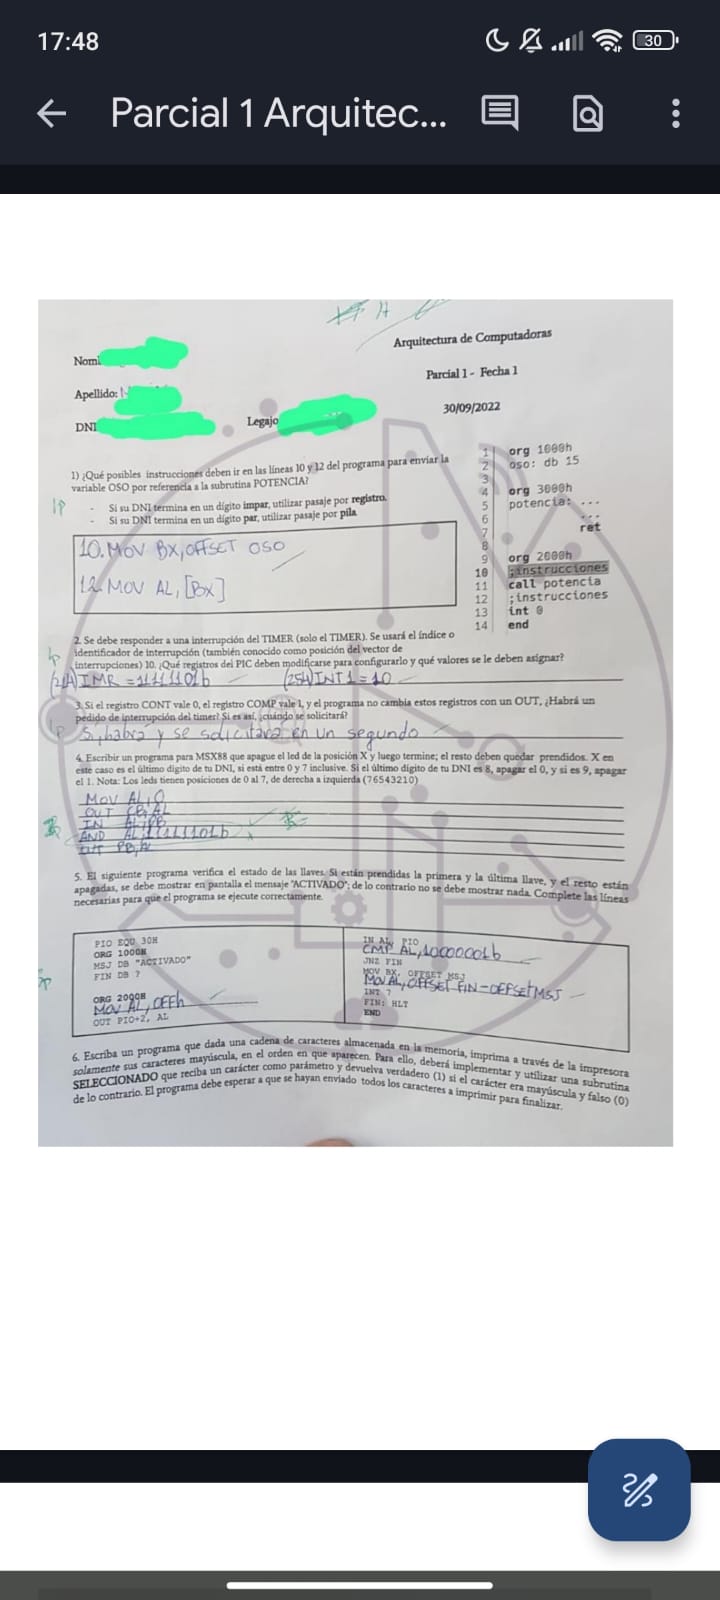 17:48
30
Parcial 1 Arquitec...
Arquitectura de Computadoras
Parcial 1 - Fecha 1
30/09/2022
Apellido:
DNI
Legajo
1) ¿Qué posibles instrucciones deben ir en las líneas 10 y 12 del programa para enviar la
variable OSO por referencia a la subrutina POTENCIA?
- Si su DNI termina en un dígito impar, utilizar pasaje por registro.
- Si su DNI termina en un dígito par, utilizar pasaje por pila
10. MOV BX, OFFSET OSO
12. MOV AL, [BX]
1 org 1000h
2 oso: db 15
3
4 org 3000h
5 potencia: ...
6 ...
7 ret
8
9 org 2000h
10 ;instrucciones
11 call potencia
12 ;instrucciones
13 int 0
14 end
2. Se debe responder a una interrupción del TIMER (solo el TIMER). Se usará el índice o
identificador de interrupción (también conocido como posición del vector de
interrupciones) 10. ¿Qué registros del PIC deben modificarse para configurarlo y qué valores se le deben asignar?
(21h) IMR = 11111101b (25H) INT1 = 10
3. Si el registro CONT vale 0, el registro COMP vale 1, y el programa no cambia estos registros con un OUT, ¿Habrá un
pedido de interrupción del timer? Si es así, ¿cuándo se solicitará?
Si, habra y se solicitara en un segundo
4. Escribir un programa para MSX88 que apague el led de la posición X y luego termine; el resto deben quedar prendidos. X en
este caso es el último dígito de tu DNI, si está entre 0 y 7 inclusive. Si el último dígito de tu DNI es 8, apagar el 0, y si es 9, apagar
el 1. Nota: Los leds tienen posiciones de 0 al 7, de derecha a izquierda (76543210)
MOV AL, 0
OUT CB, AL
IN AL, PB
AND AL, 11111101b
OUT PB, AL
5. El siguiente programa verifica el estado de las llaves. Si están prendidas la primera y la última llave, y el resto están
apagadas, se debe mostrar en pantalla el mensaje "ACTIVADO"; de lo contrario no se debe mostrar nada. Complete las líneas
necesarias para que el programa se ejecute correctamente.
PIO EQU 30H
ORG 1000H
MSJ DB "ACTIVADO"
FIN DB ?
ORG 2000H
MOV AL, 0FFh
OUT PIO+2, AL
IN AL, PIO
CMP AL, 10000001b
JNZ FIN
MOV BX, OFFSET MSJ
MOV AL, OFFSET FIN-OFFSET MSJ
INT 7
FIN: HLT
END
6. Escriba un programa que dada una cadena de caracteres almacenada en la memoria, imprima a través de la impresora
solamente sus caracteres mayúscula, en el orden en que aparecen. Para ello, deberá implementar y utilizar una subrutina
SELECCIONADO que reciba un carácter como parámetro y devuelva verdadero (1) si el carácter era mayúscula y falso (0)
de lo contrario. El programa debe esperar a que se hayan enviado todos los caracteres a imprimir para finalizar.